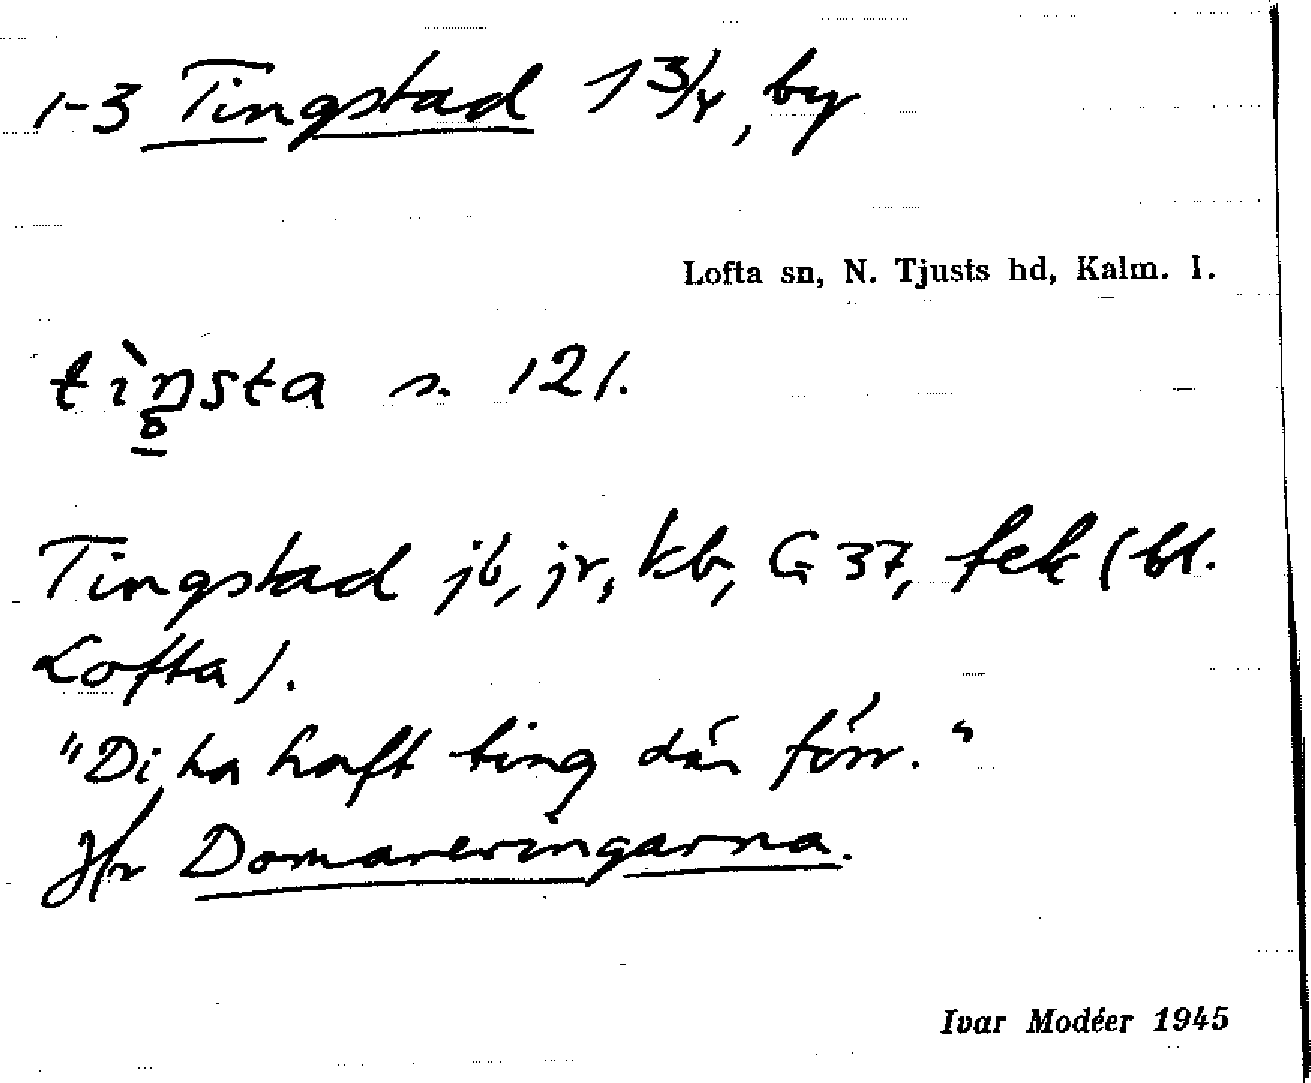 1-3 Tingstad 1 3/4, by
Lofta sn, N. Tjusts hd, Kalm. l.
tìŋsta s. 121.
Tingstad jb, jr, kb, G 37, fek (bl.
Lofta).
"Di ha haft ting där förr."
Jfr Domareringarna.
Ivar Modéer 1945